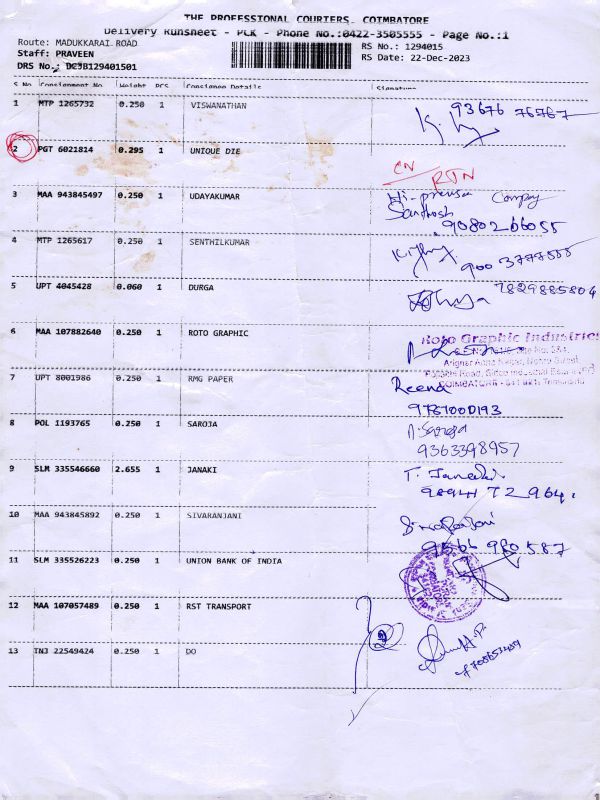 THE PROFESSIONAL COURIERS, COIMBATORE
Delivery Runsheet - PCK - Phone No.:0422-3505555 - Page No.:1
Route: MADUKKARAI ROAD
Staff: PRAVEEN
DRS No.: DCJB129401501
RS No.: 1294015
RS Date: 22-Dec-2023
S No Consignment No Weight PCS Consignee Details Signature
1 MTP 1265732 0.250 1 VISWANATHAN 93676 76767
2 PGT 6021814 0.295 1 UNIQUE DIE CN RTN
3 MAA 943845497 0.250 1 UDAYAKUMAR Company
Santhosh
9080266055
4 MTP 1265617 0.250 1 SENTHILKUMAR 900 3777555
5 UPT 4045428 0.060 1 DURGA 7829885804
6 MAA 107882640 0.250 1 ROTO GRAPHIC Roto Graphic Industries
7 UPT 8001986 0.250 1 RMG PAPER Reena
9787000193
8 POL 1193765 0.250 1 SAROJA A. Saroja
9363398957
9 SLM 335546660 2.655 1 JANAKI T. Janaki
98944 72964.
10 MAA 943845892 0.250 1 SIVARANJANI
9566 980 587
11 SLM 335526223 0.250 1 UNION BANK OF INDIA
12 MAA 107057489 0.250 1 RST TRANSPORT
13 TNJ 22549424 0.250 1 DO